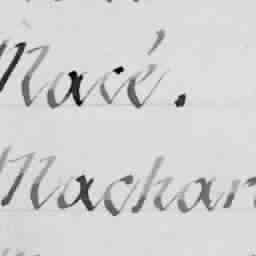 Macé.
Machar